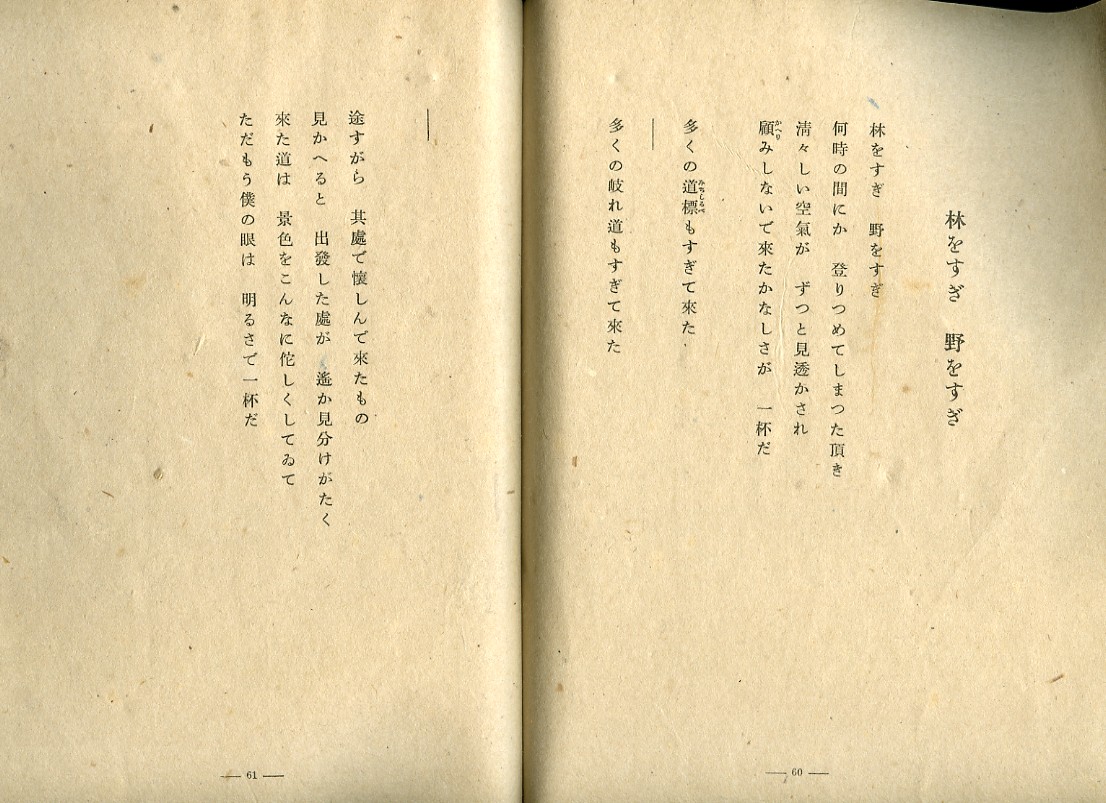 林をすぎ　野をすぎ
林をすぎ　野をすぎ
何時の間にか　登りつめてしまつた頂き
淸々しい空氣が　ずつと見透かされ
顧みしないで來たかなしさが　一杯だ
かへり
多くの道標もすぎて來た
みちしるべ
―
多くの岐れ道もすぎて來た
― 60 ―
―
途すがら　其處で懷しんで來たもの
見かへると　出發した處が　遙か見分けがたく
來た道は　景色をこんなに佗しくしてゐて
ただもう僕の眼は　明るさで一杯だ
― 61 ―